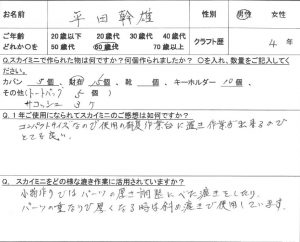 お名前 平田幹雄 性別 男性 女性
ご年齢 20歳以下 20歳代 30歳代 40歳代 クラフト歴 4年
どれか〇を 50歳代 60歳代 70歳以上
Q.スカイミニで作られた物は何ですか？何個作られましたか？ 〇を入れ、数量をご記入してください。
カバン 3個、財布 15個、靴 個、キーホルダー 10個、
その他(トートバッグ 5個)
サコッシュ 3ケ
Q. 1年ご使用になられてスカイミニのご感想は如何ですか？
コンパクトサイズなので使用の都度作業台に漉き作業が出来るので
とても良い。
Q. スカイミニをどの様な漉き作業に活用されていますか？
小物作りではパーツの厚さ調整にベタ漉きをしたり、
パーツの重なりで厚くなる時は斜め漉きで使用しています。